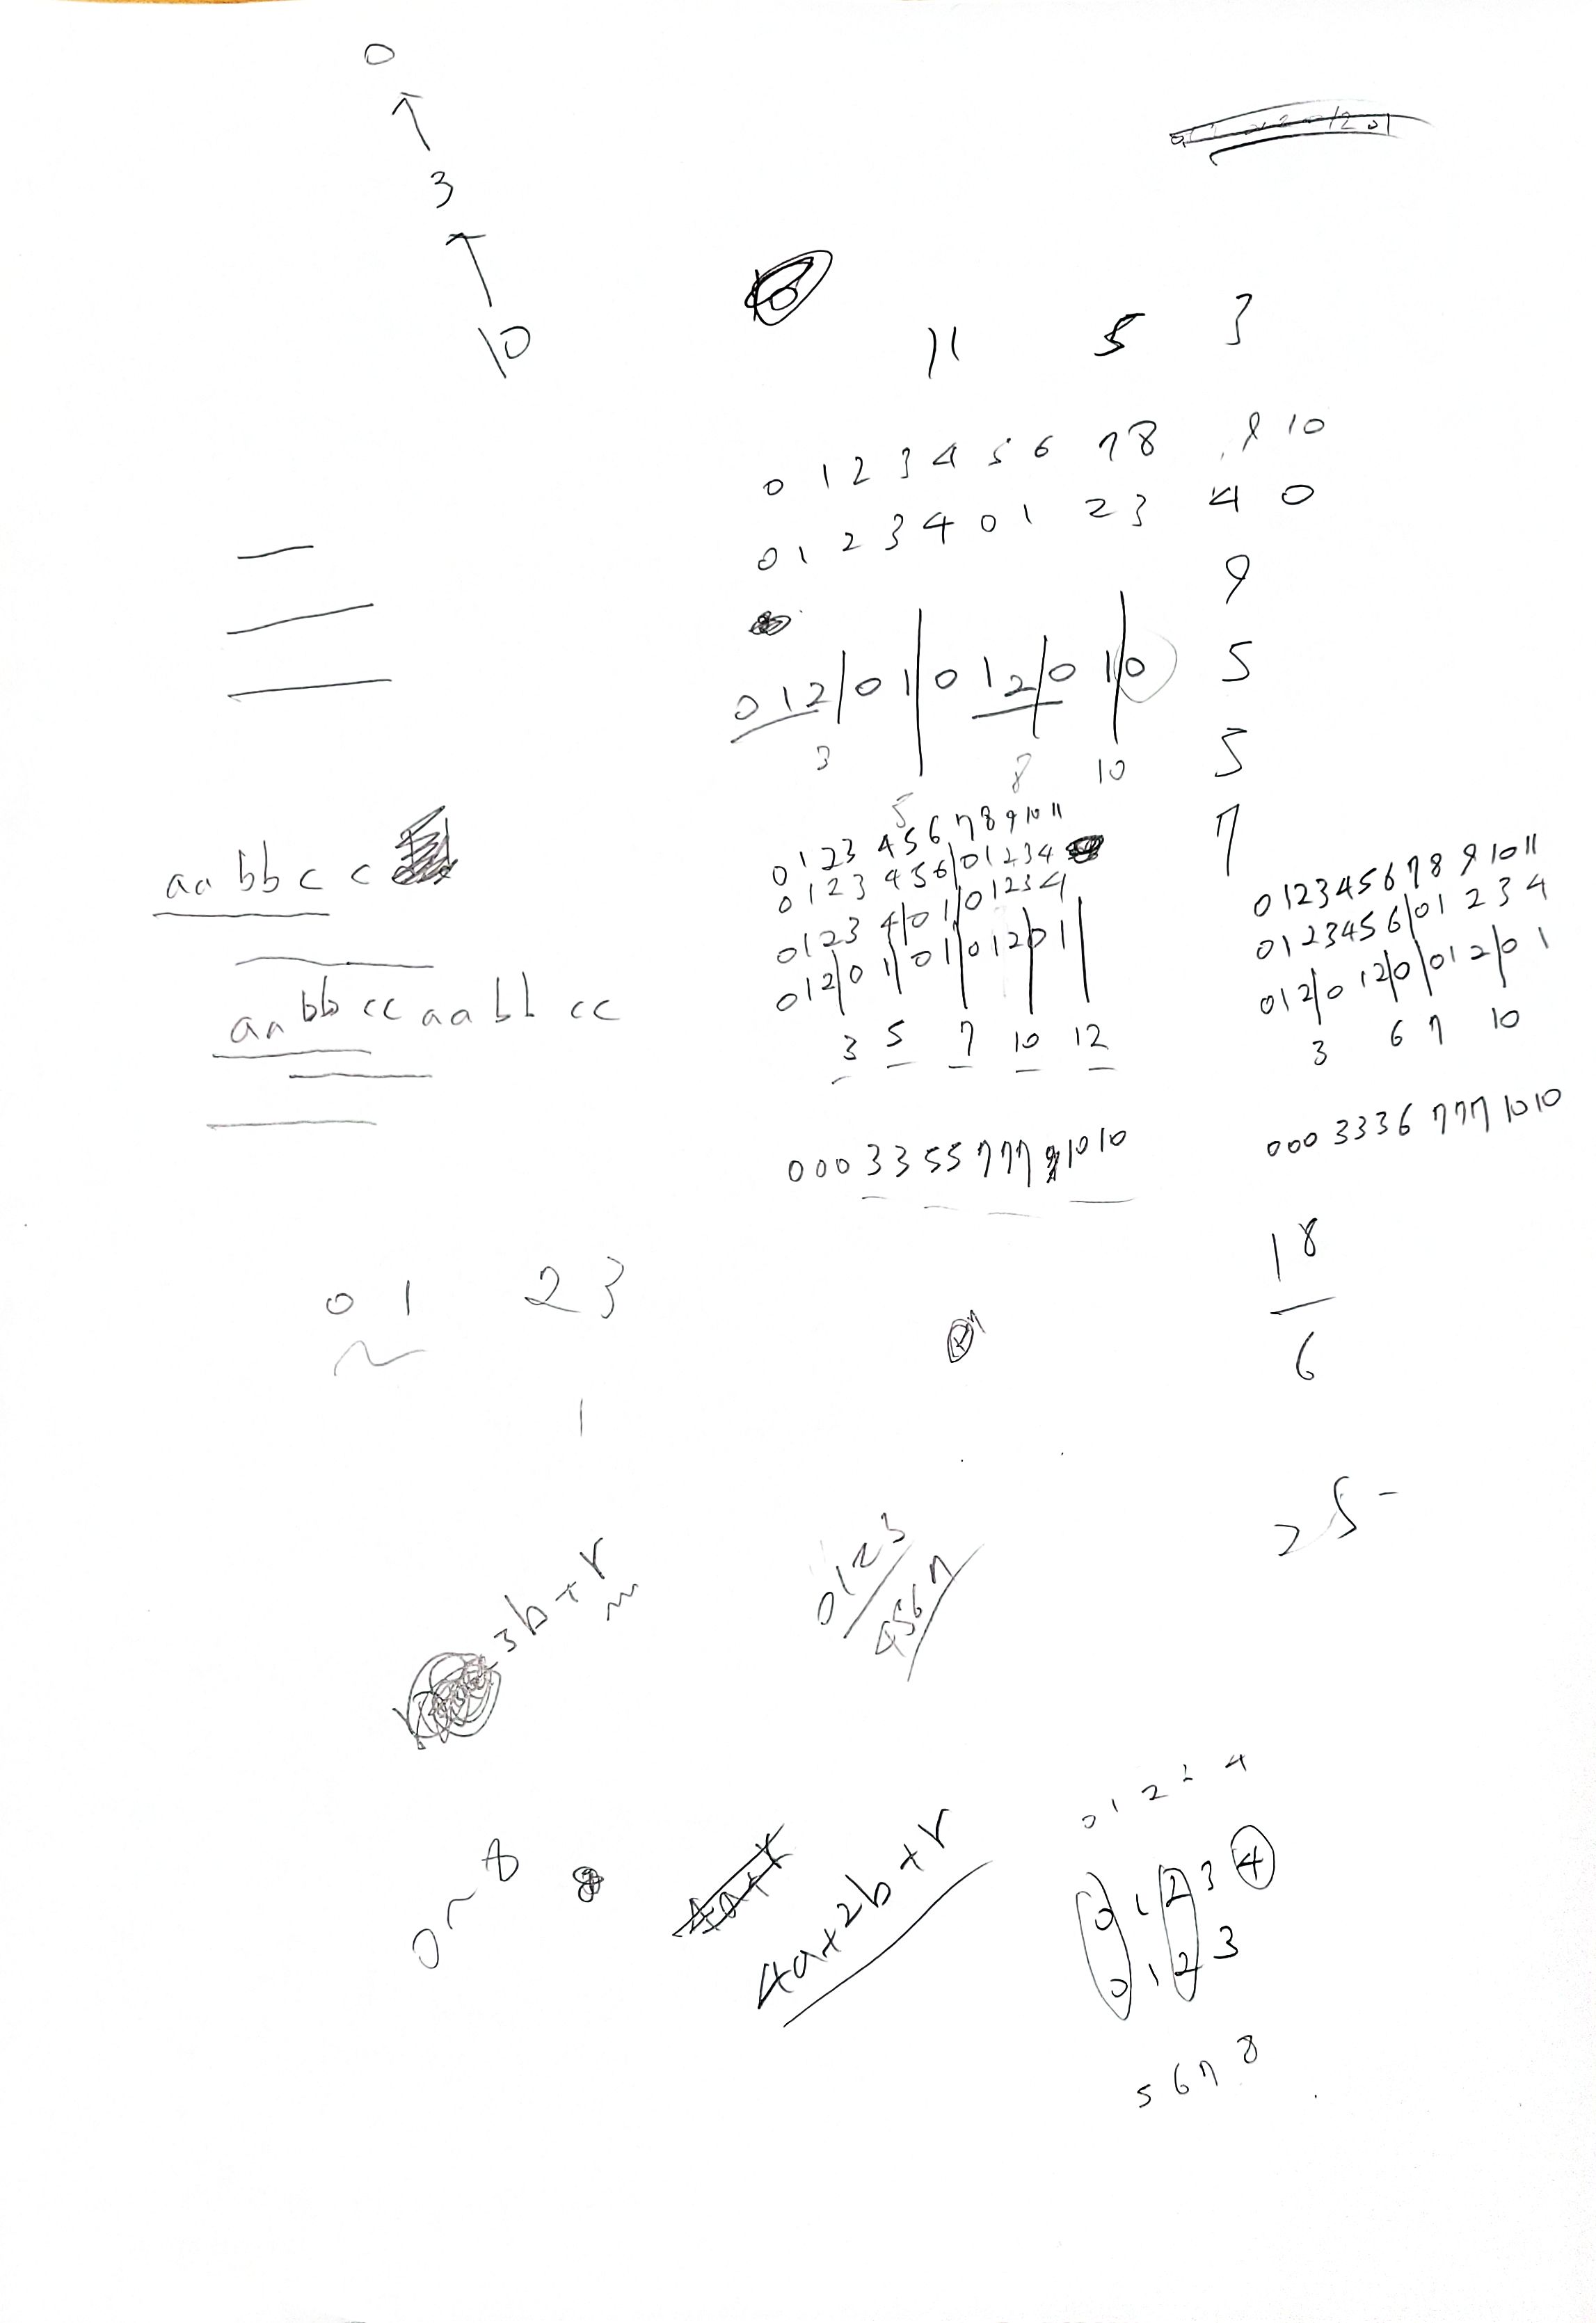 0
3
10
11 5 3
0 1 2 3 4 5 6 7 8 9 10
0 1 2 3 4 0 1 2 3 4 0
9
0 1 2 / 0 1 | 0 1 2 / 0 1 | 0
5
3 5 8 10
5
7
0 1 2 3 4 5 6 7 8 9 10 11
0 1 2 3 4 5 6 | 0 1 2 3 4
0 1 2 3 4 | 0 1 | 0 1 2 3 4
0 1 2 | 0 1 | 0 1 | 0 1 2 | 0 1 |
3 5 7 10 12
0 0 0 3 3 5 5 7 7 7 10 10
0 1 2 3 4 5 6 7 8 9 10 11
0 1 2 3 4 5 6 | 0 1 2 3 4
0 1 2 | 0 1 2 | 0 | 0 1 2 | 0 1
3 6 7 10
0 0 0 3 3 3 6 7 7 7 10 10
aa bb c c
aa bb cc aa bb cc
0 1 2 3
1
18
6
25-
3b+r
0123
4567
0~8
4a+2b+r
0 1 2 4
0 1 2 3 4
0 1 2 3
5 6 7 8